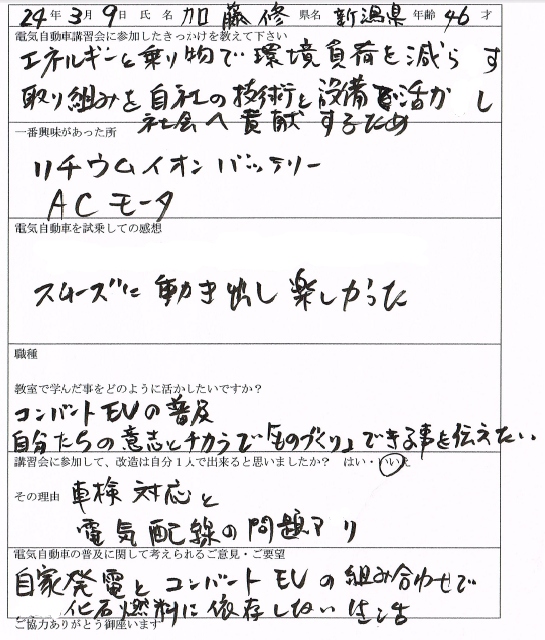 24年3月9日 氏名 加藤修 県名 新潟県 年齢 46 才
電気自動車講習会に参加したきっかけを教えて下さい
エネルギーと乗り物で環境負荷を減らす
取り組みを自社の技術と設備で活かし
社会へ貢献するため
一番興味があった所
リチウムイオンバッテリー
ACモータ
電気自動車を試乗しての感想
スムーズに動き出し楽しかった
職種
教室で学んだ事をどのように活かしたいですか?
コンバントEVの普及
自分たちの意志とチカラで「ものづくり」できる事を伝えたい。
講習会に参加して、改造は自分1人で出来ると思いましたか? はい・いいえ
その理由 車検対応と
電気配線の問題アリ
電気自動車の普及に関して考えられるご意見・ご要望
自家発電とコンバントEVの組み合わせで
化石燃料に依存しない生活
ご協力ありがとう御座います